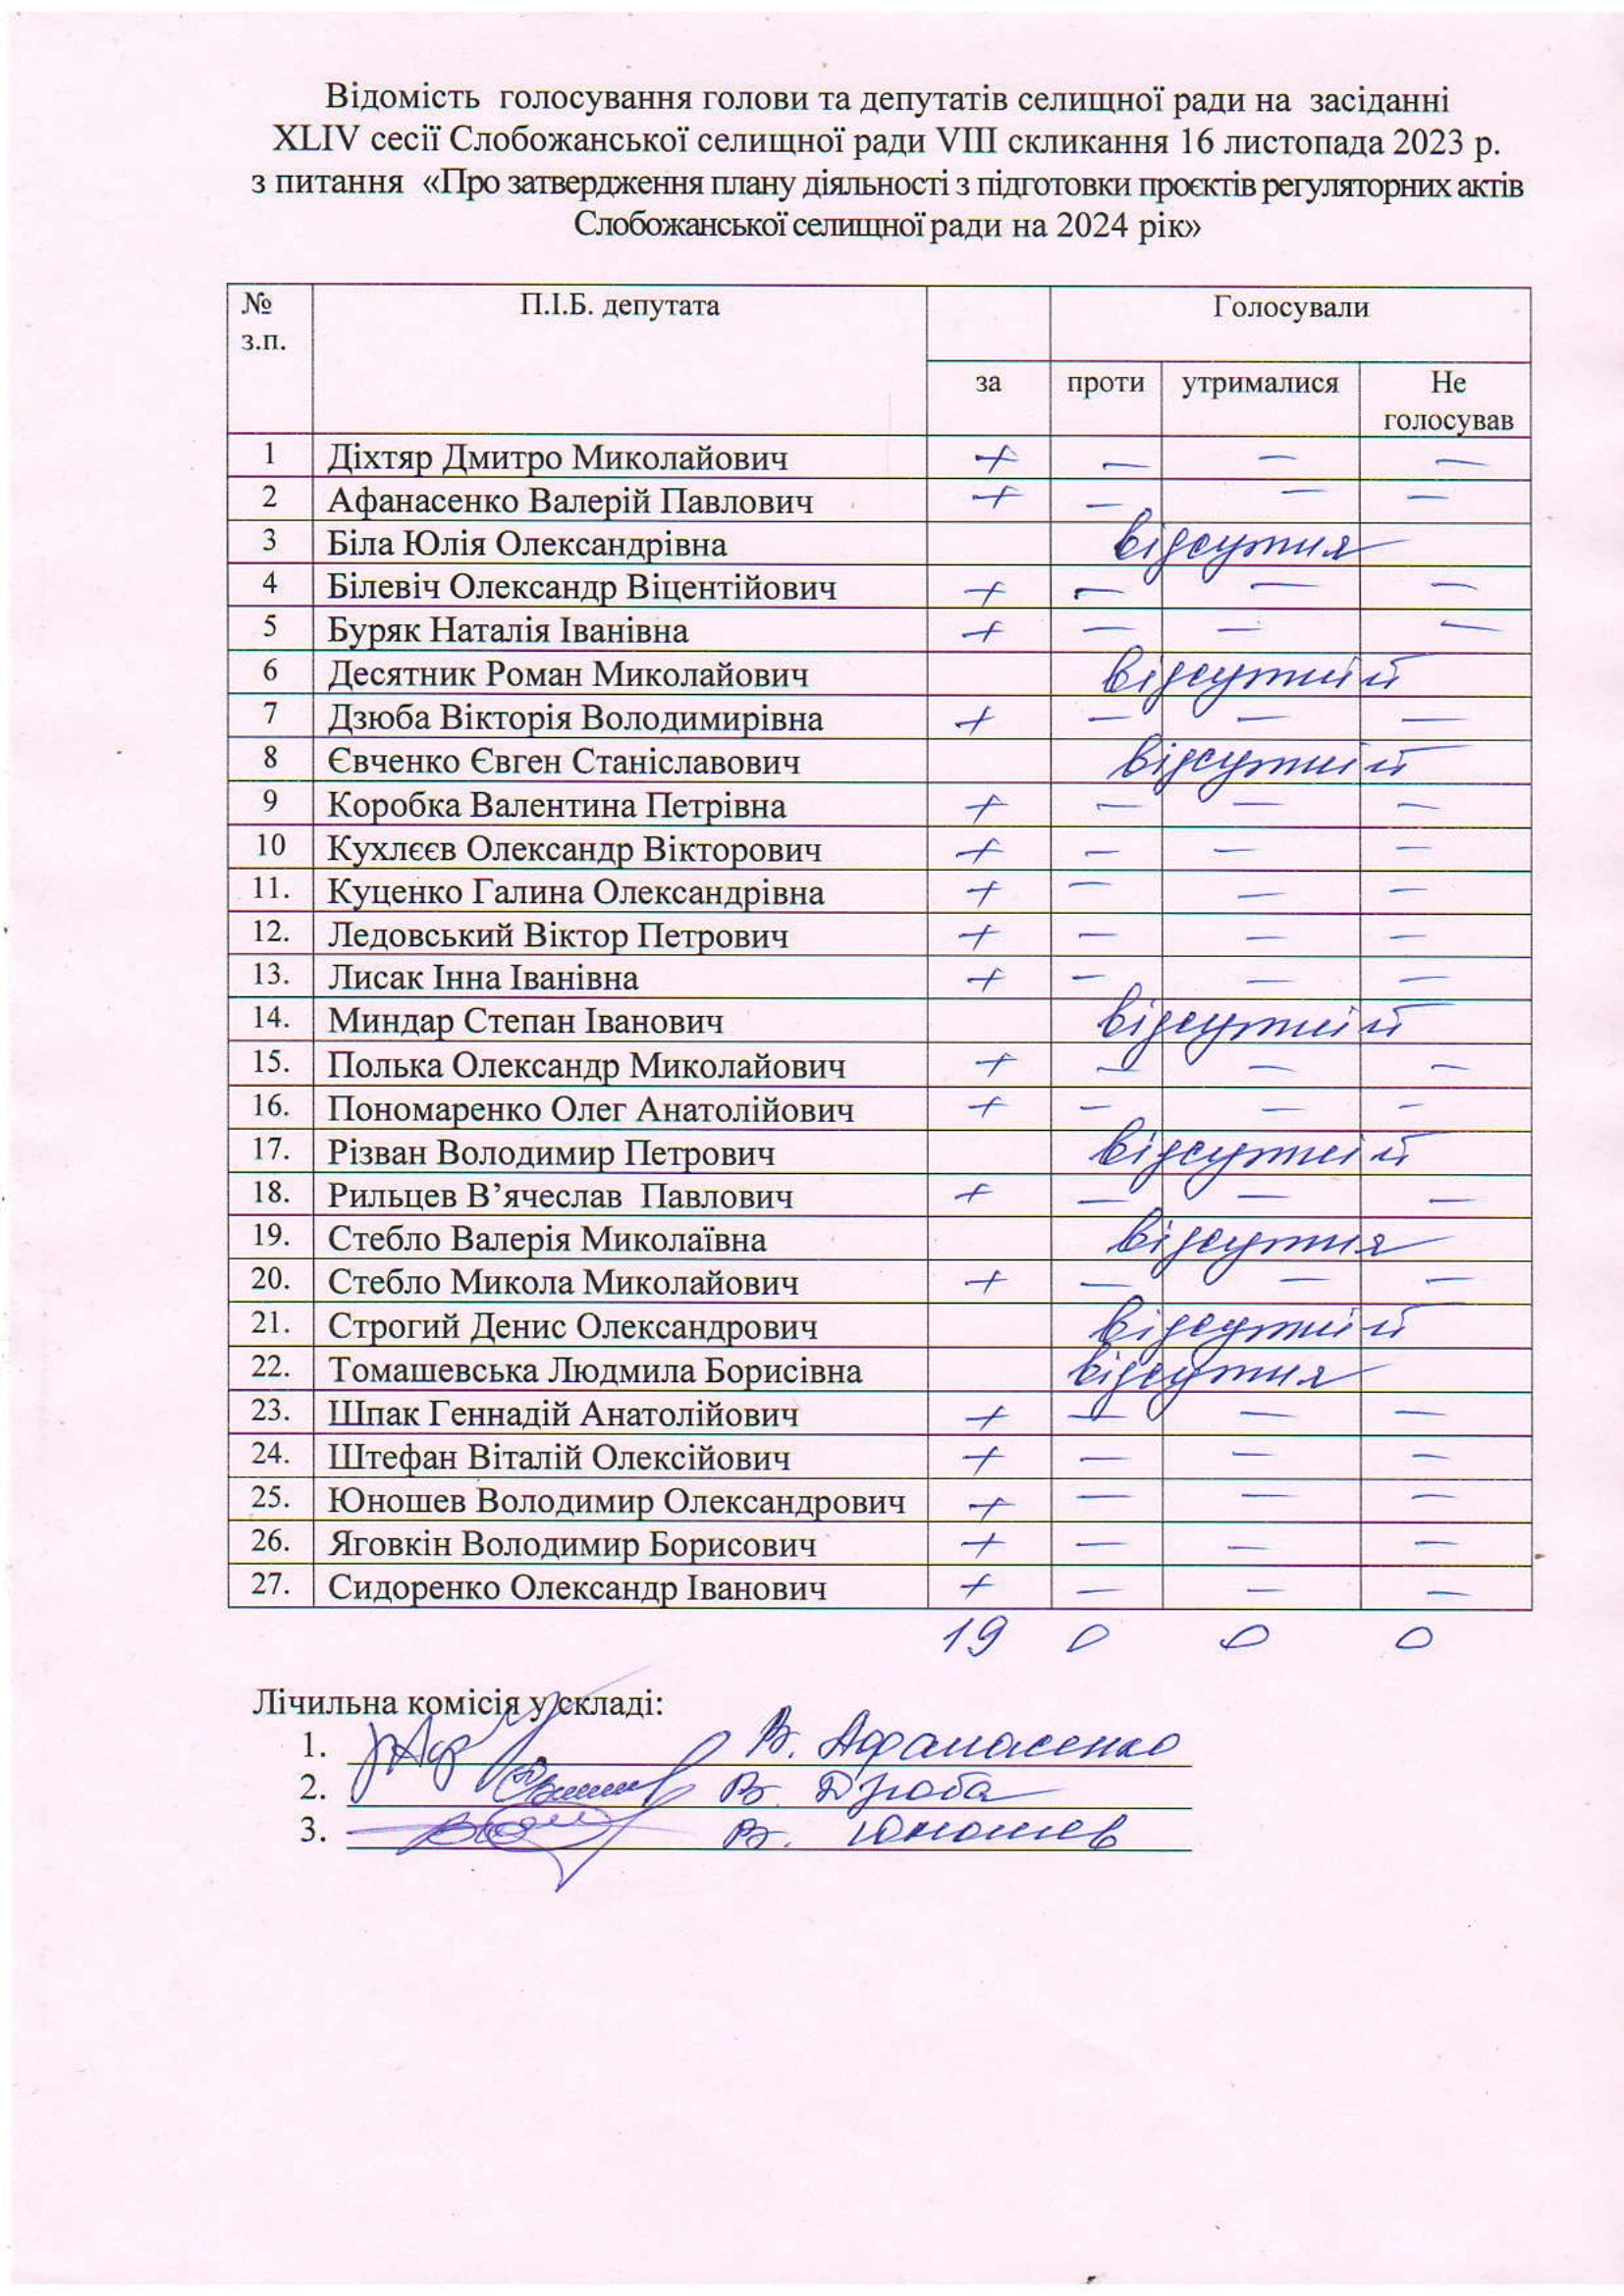 Відомість голосування голови та депутатів селищної ради на засіданні
XLIV сесії Слобожанської селищної ради VIII скликання 16 листопада 2023 р.
з питання «Про затвердження плану діяльності з підготовки проєктів регуляторних актів
Слобожанської селищної ради на 2024 рік»
№ з.п. П.І.Б. депутата Голосували
за проти утрималися Не голосував
1 Діхтяр Дмитро Миколайович + — — —
2 Афанасенко Валерій Павлович + — — —
3 Біла Юлія Олександрівна відсутня
4 Білевіч Олександр Віцентійович + — — —
5 Буряк Наталія Іванівна + — — —
6 Десятник Роман Миколайович відсутній
7 Дзюба Вікторія Володимирівна + — — —
8 Євченко Євген Станіславович відсутній
9 Коробка Валентина Петрівна + — — —
10 Кухлєєв Олександр Вікторович + — — —
11. Куценко Галина Олександрівна + — — —
12. Ледовський Віктор Петрович + — — —
13. Лисак Інна Іванівна + — — —
14. Миндар Степан Іванович відсутній
15. Полька Олександр Миколайович + — — —
16. Пономаренко Олег Анатолійович + — — —
17. Різван Володимир Петрович відсутній
18. Рильцев В’ячеслав Павлович + — — —
19. Стебло Валерія Миколаївна відсутня
20. Стебло Микола Миколайович + — — —
21. Строгий Денис Олександрович відсутній
22. Томашевська Людмила Борисівна відсутня
23. Шпак Геннадій Анатолійович + — — —
24. Штефан Віталій Олексійович + — — —
25. Юношев Володимир Олександрович + — — —
26. Яговкін Володимир Борисович + — — —
27. Сидоренко Олександр Іванович + — — —
19 0 0 0
Лічильна комісія у складі:
1. В. Афанасенко
2. В. Дзюба
3. В. Юношев